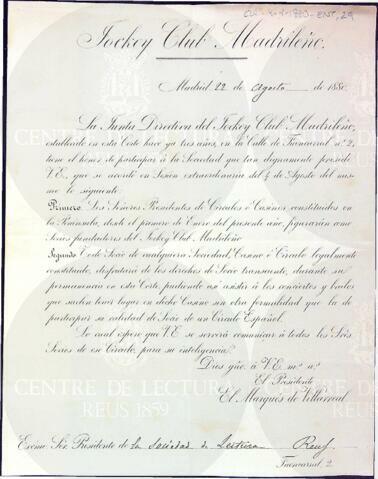 Jockey Club Madrileño.
Madrid 22 de Agosto de 1880.
La Junta Directiva del Jockey Club Madrileño,
establecido en esta Corte hace ya tres años, en la Calle de Fuencarral nº 2,
tiene el honor de participar á la Sociedad que tan dignamente preside
V.E., que se acordó en Sesión extraordinaria del 4 de Agosto del mis-
mo lo siguiente:
Primero. Los Señores Presidentes de Círculos ó Casinos constituidos en
la Península, desde el primero de Enero del presente año, figurarán como
Socios fundadores del Jockey Club Madrileño
Segundo. Todo Socio de cualquiera Sociedad, Casino ó Círculo legalmente
constituido, disfrutará de los derechos de Socio transeunte, durante su
permanencia en esta Corte, pudiendo así asistir á los conciertos y bailes
que suelen tener lugar en dicho Casino sin otra formalidad que la de
participar su calidad de Socio de un Círculo Español.
Lo cual espero que V.E. se servirá comunicar á todos los Sres.
Socios de ese Círculo, para su inteligencia.
Dios gûe. á V.E. m.s a.s
El Presidente
El Marqués de Villarreal
CENTRE DE LECTURA
REUS 1859
Exmo Sr. Presidente de la Sociedad de Lectura Reus
Fuencarral, 2.